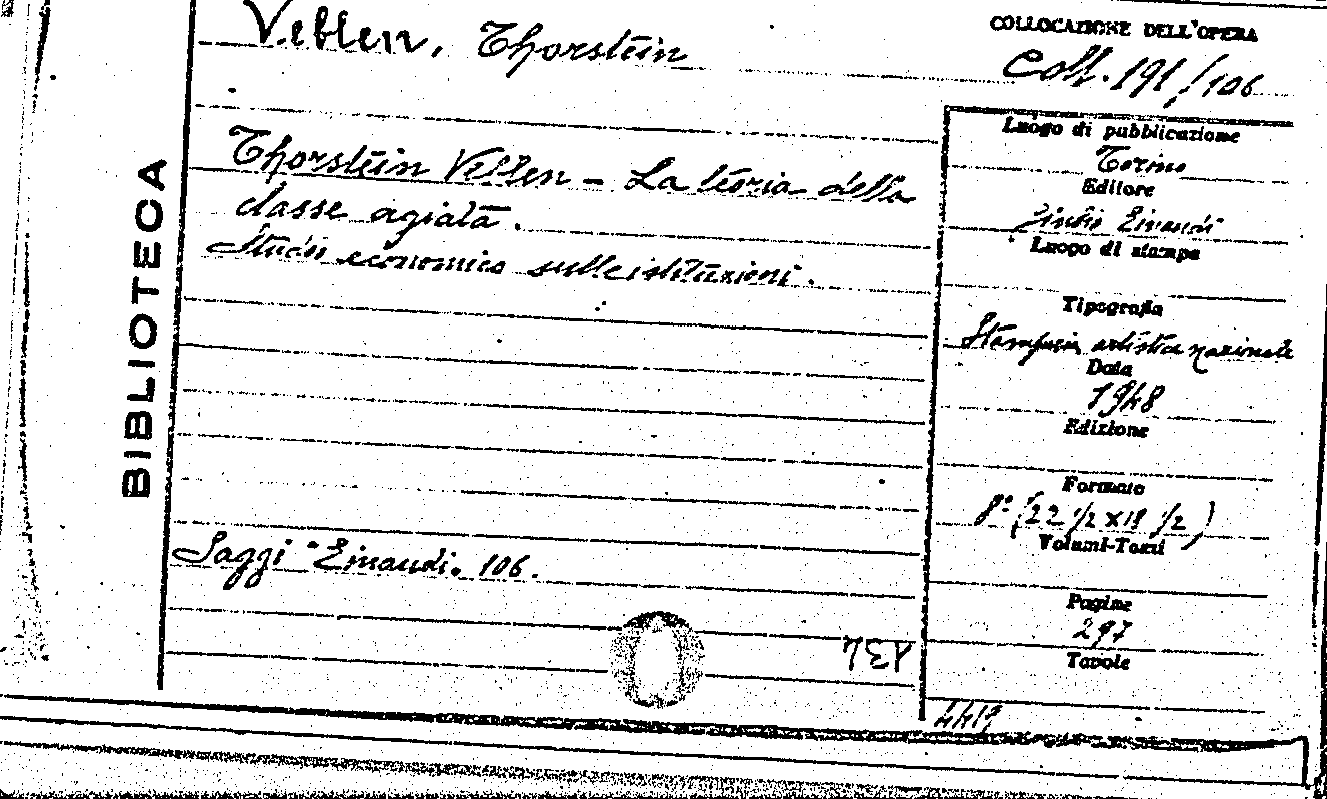 Veblen, Thorstein
COLLOCAZIONE DELL'OPERA
Coll. 191/106
BIBLIOTECA
Thorstein Veblen - La teoria della
classe agiata.
Studio economico sulle istituzioni.
Saggi "Einaudi. 106.
Luogo di pubblicazione
Torino
Editore
Giulio Einaudi
Luogo di stampa
Tipografia
Stamperia artistica nazionale
Data
1948
Edizione
Formato
8° (22 1/2 x 18 1/2)
Volumi-Tomi
Pagine
297
Tavole
4419